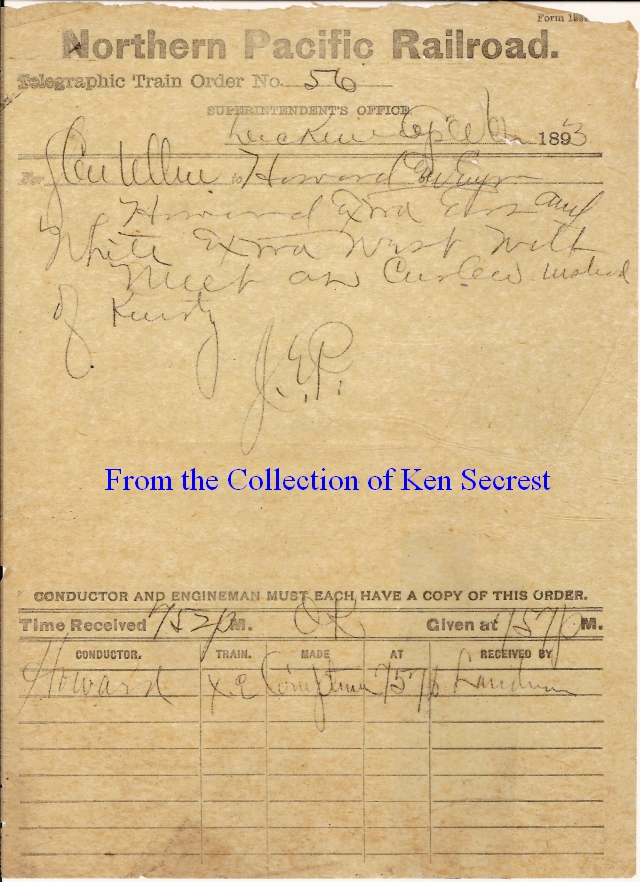 Form 188
Northern Pacific Railroad.
Telegraphic Train Order No. 56
SUPERINTENDENT'S OFFICE
1893
For Glen Ullin to Howard
Howard Extra East and
White Extra West will
Meet at Curlew instead
of Kurtz
J.E.P.
From the Collection of Ken Secrest
CONDUCTOR AND ENGINEMAN MUST EACH HAVE A COPY OF THIS ORDER.
Time Received 752p M. OK Given at 757p M.
CONDUCTOR. TRAIN. MADE AT RECEIVED BY
Howard X.E 757p